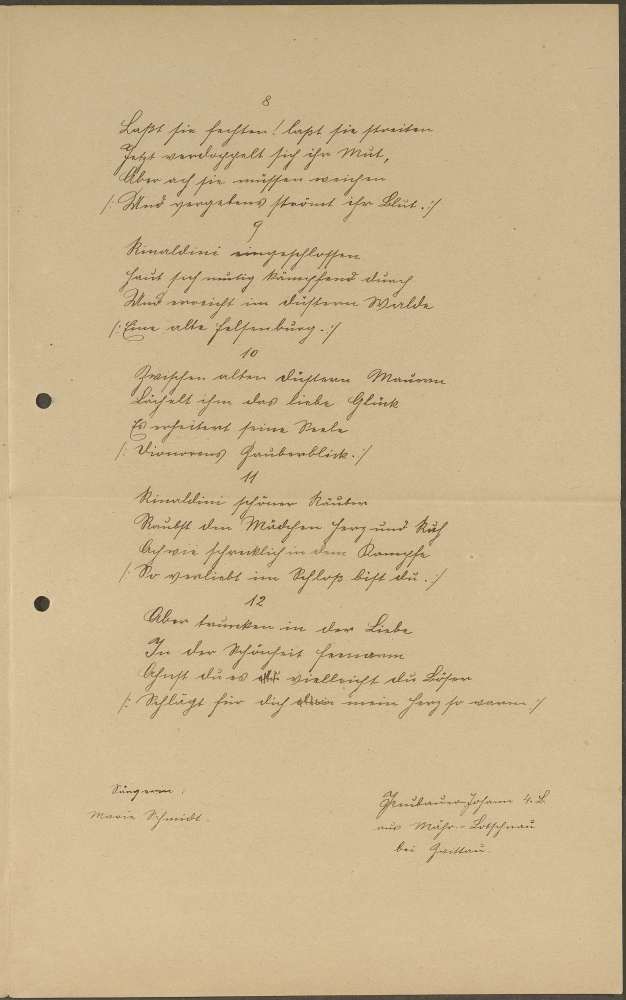 8
Laßt sie fechten! laßt sie streiten
Jetzt verdoppelt sich ihr Mut,
Aber ach sie müssen weichen
/: Und vergebens strömt ihr Blut. :/
9
Rinaldini eingeschlossen
Haut sich mutig kämpfend durch
Und erreicht im düstern Walde
/: Eine alte Felsenburg. :/
10
Zwischen alten düstern Mauern
Lächelt ihm das liebe Glück
Es erheitert seine Seele
/: Dianorens Zauberblick. :/
11
Rinaldini schöner Räuber
Raubst den Mädchen Herz und Ruh
Ach wie schrecklich in dem Kampfe
/: So verliebt im Schloß bist du. :/
12
Aber trunken in der Liebe
In der Schönheit
Ahnst du es vielleicht du Böser
/: Schlägt für dich mein Herz so warm :/
Sängerin:
Marie Schmidt.
Johann 4. B.
aus Mähr.-Lotschnau
bei Zwittau.